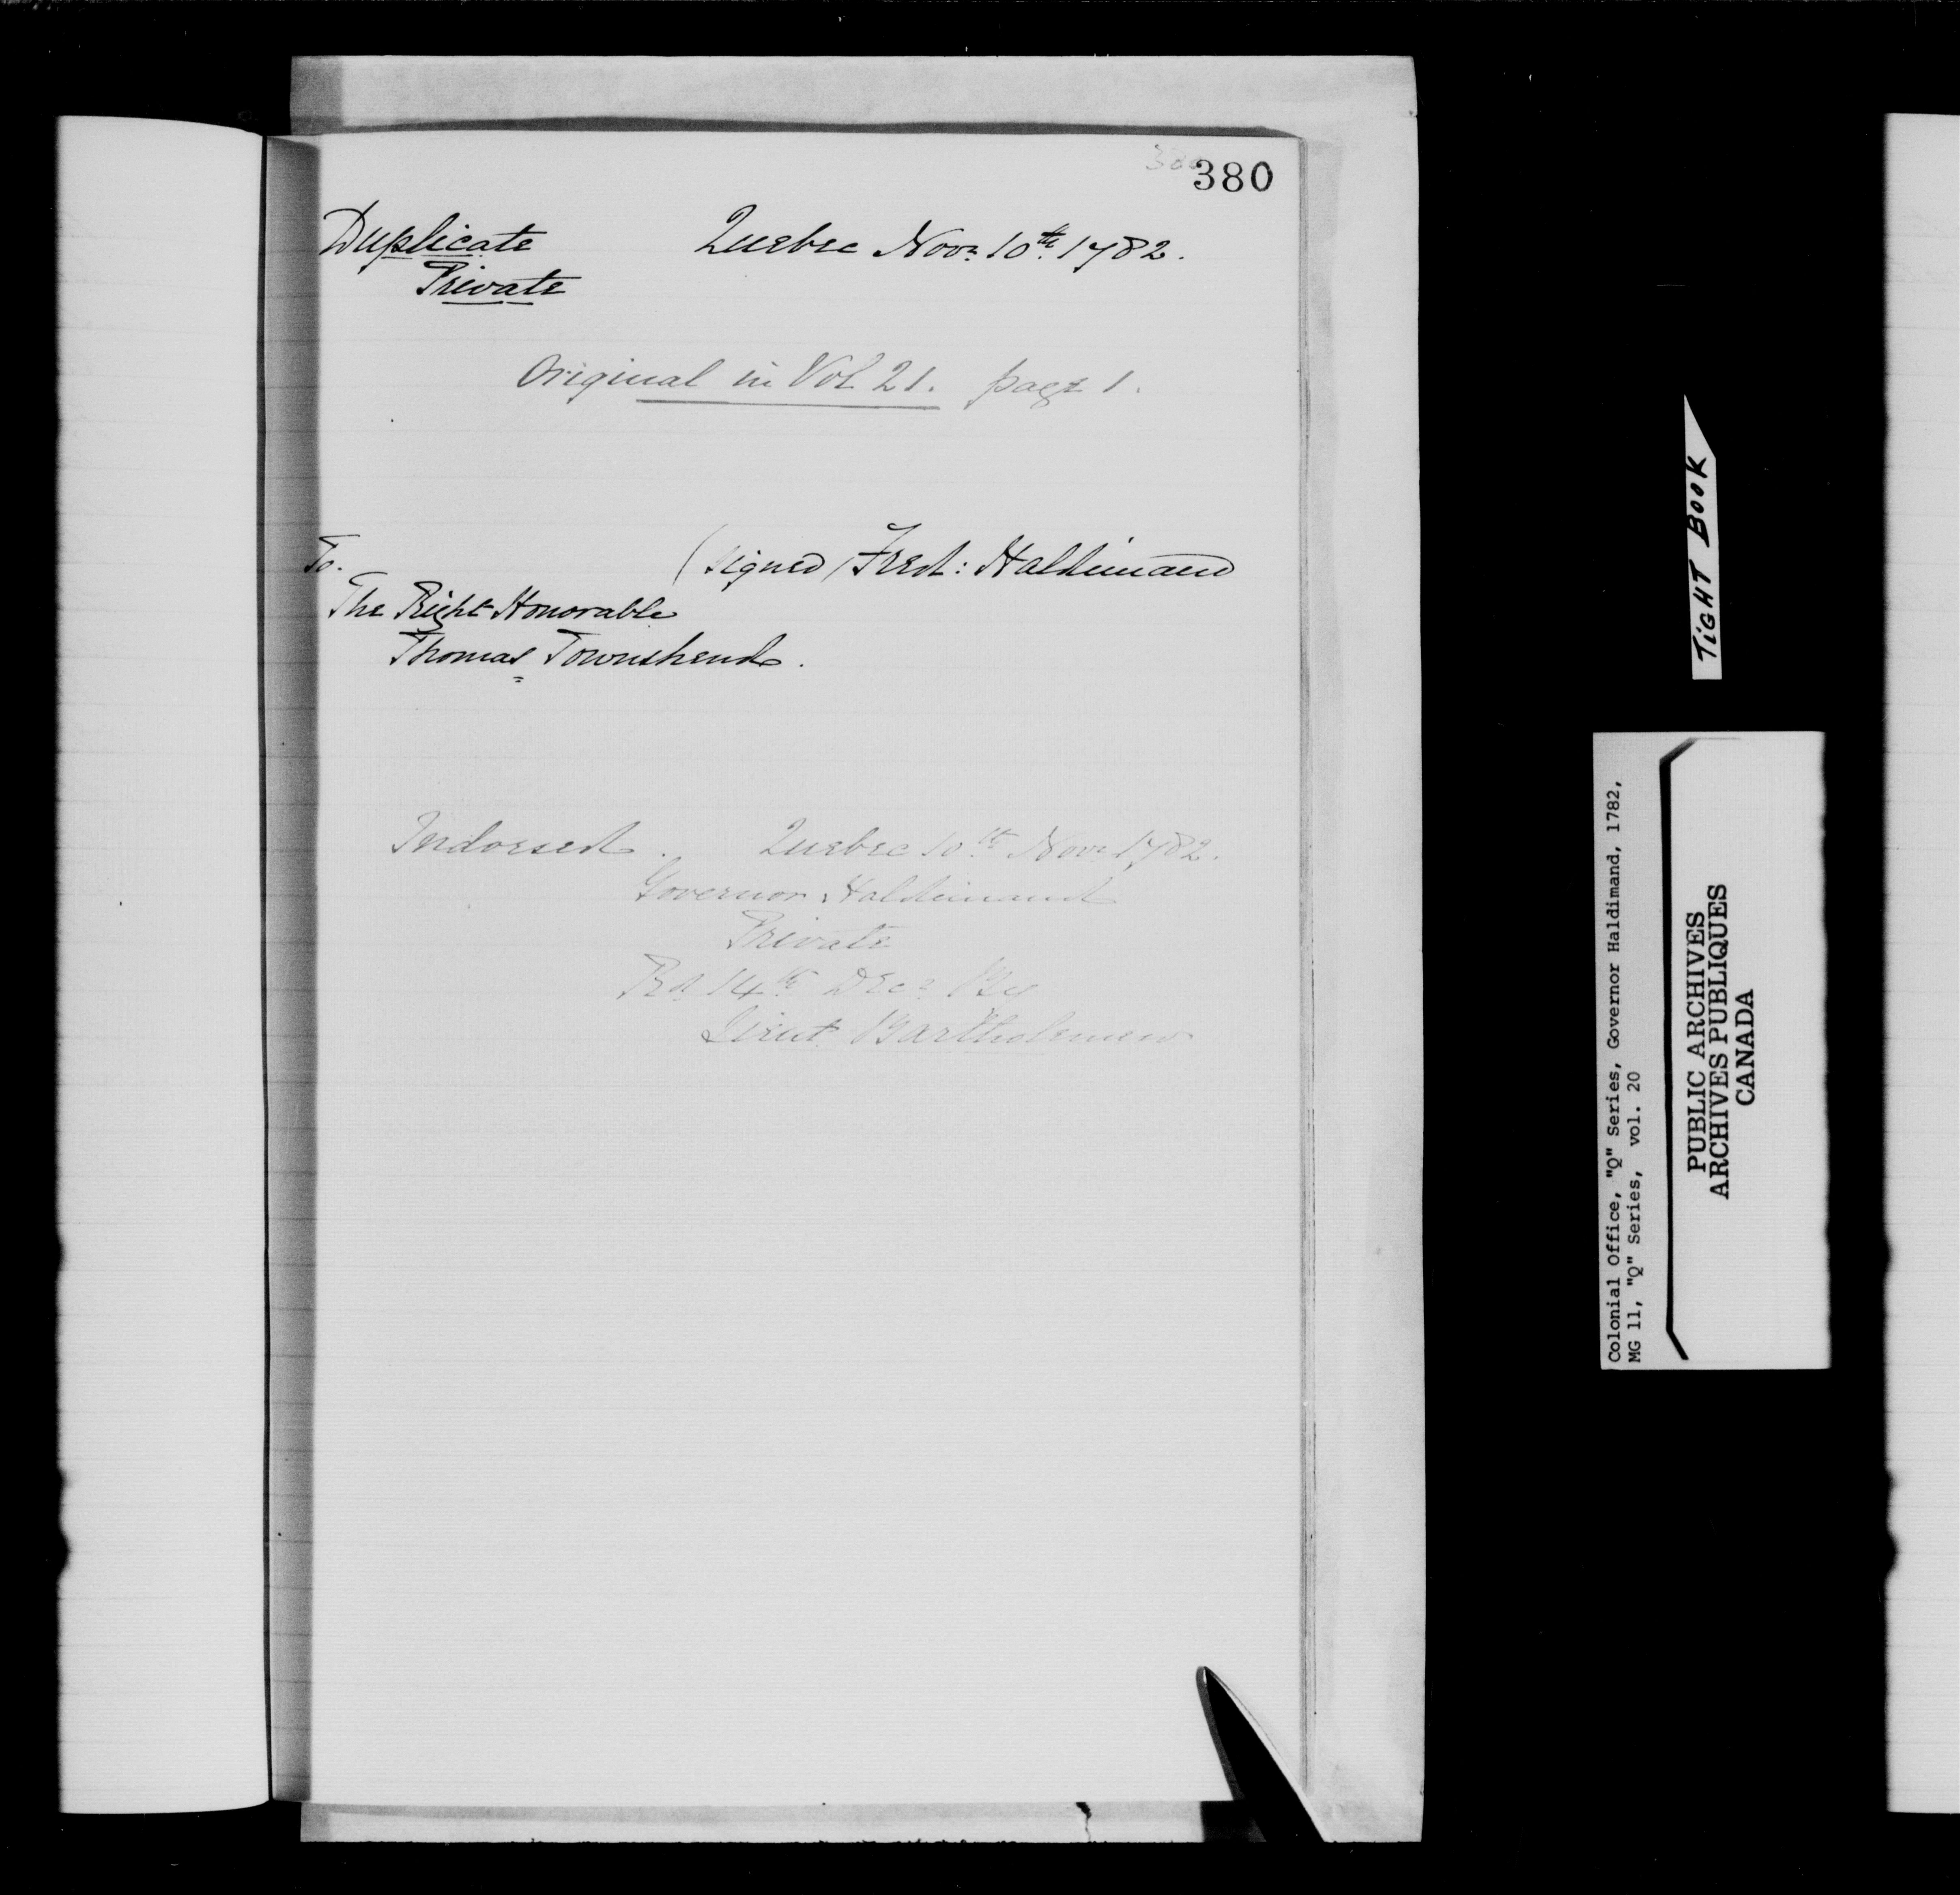 380
Duplicate Quebec Novr. 10th. 1782.
Private
Original in Vol 21. page 1.
(signed) Fred: Haldimand
To.
The Right Honorable
Thomas Townshend.
Indorsed. Quebec 10th Novr 1782.
Governor Haldimand
Private
Rd 14th Decr By
Lieut. Bartholemew
TIGHT BOOK
Colonial Office, "Q" Series, Governor Haldimand, 1782,
MG 11, "Q" Series, vol. 20
PUBLIC ARCHIVES
ARCHIVES PUBLIQUES
CANADA